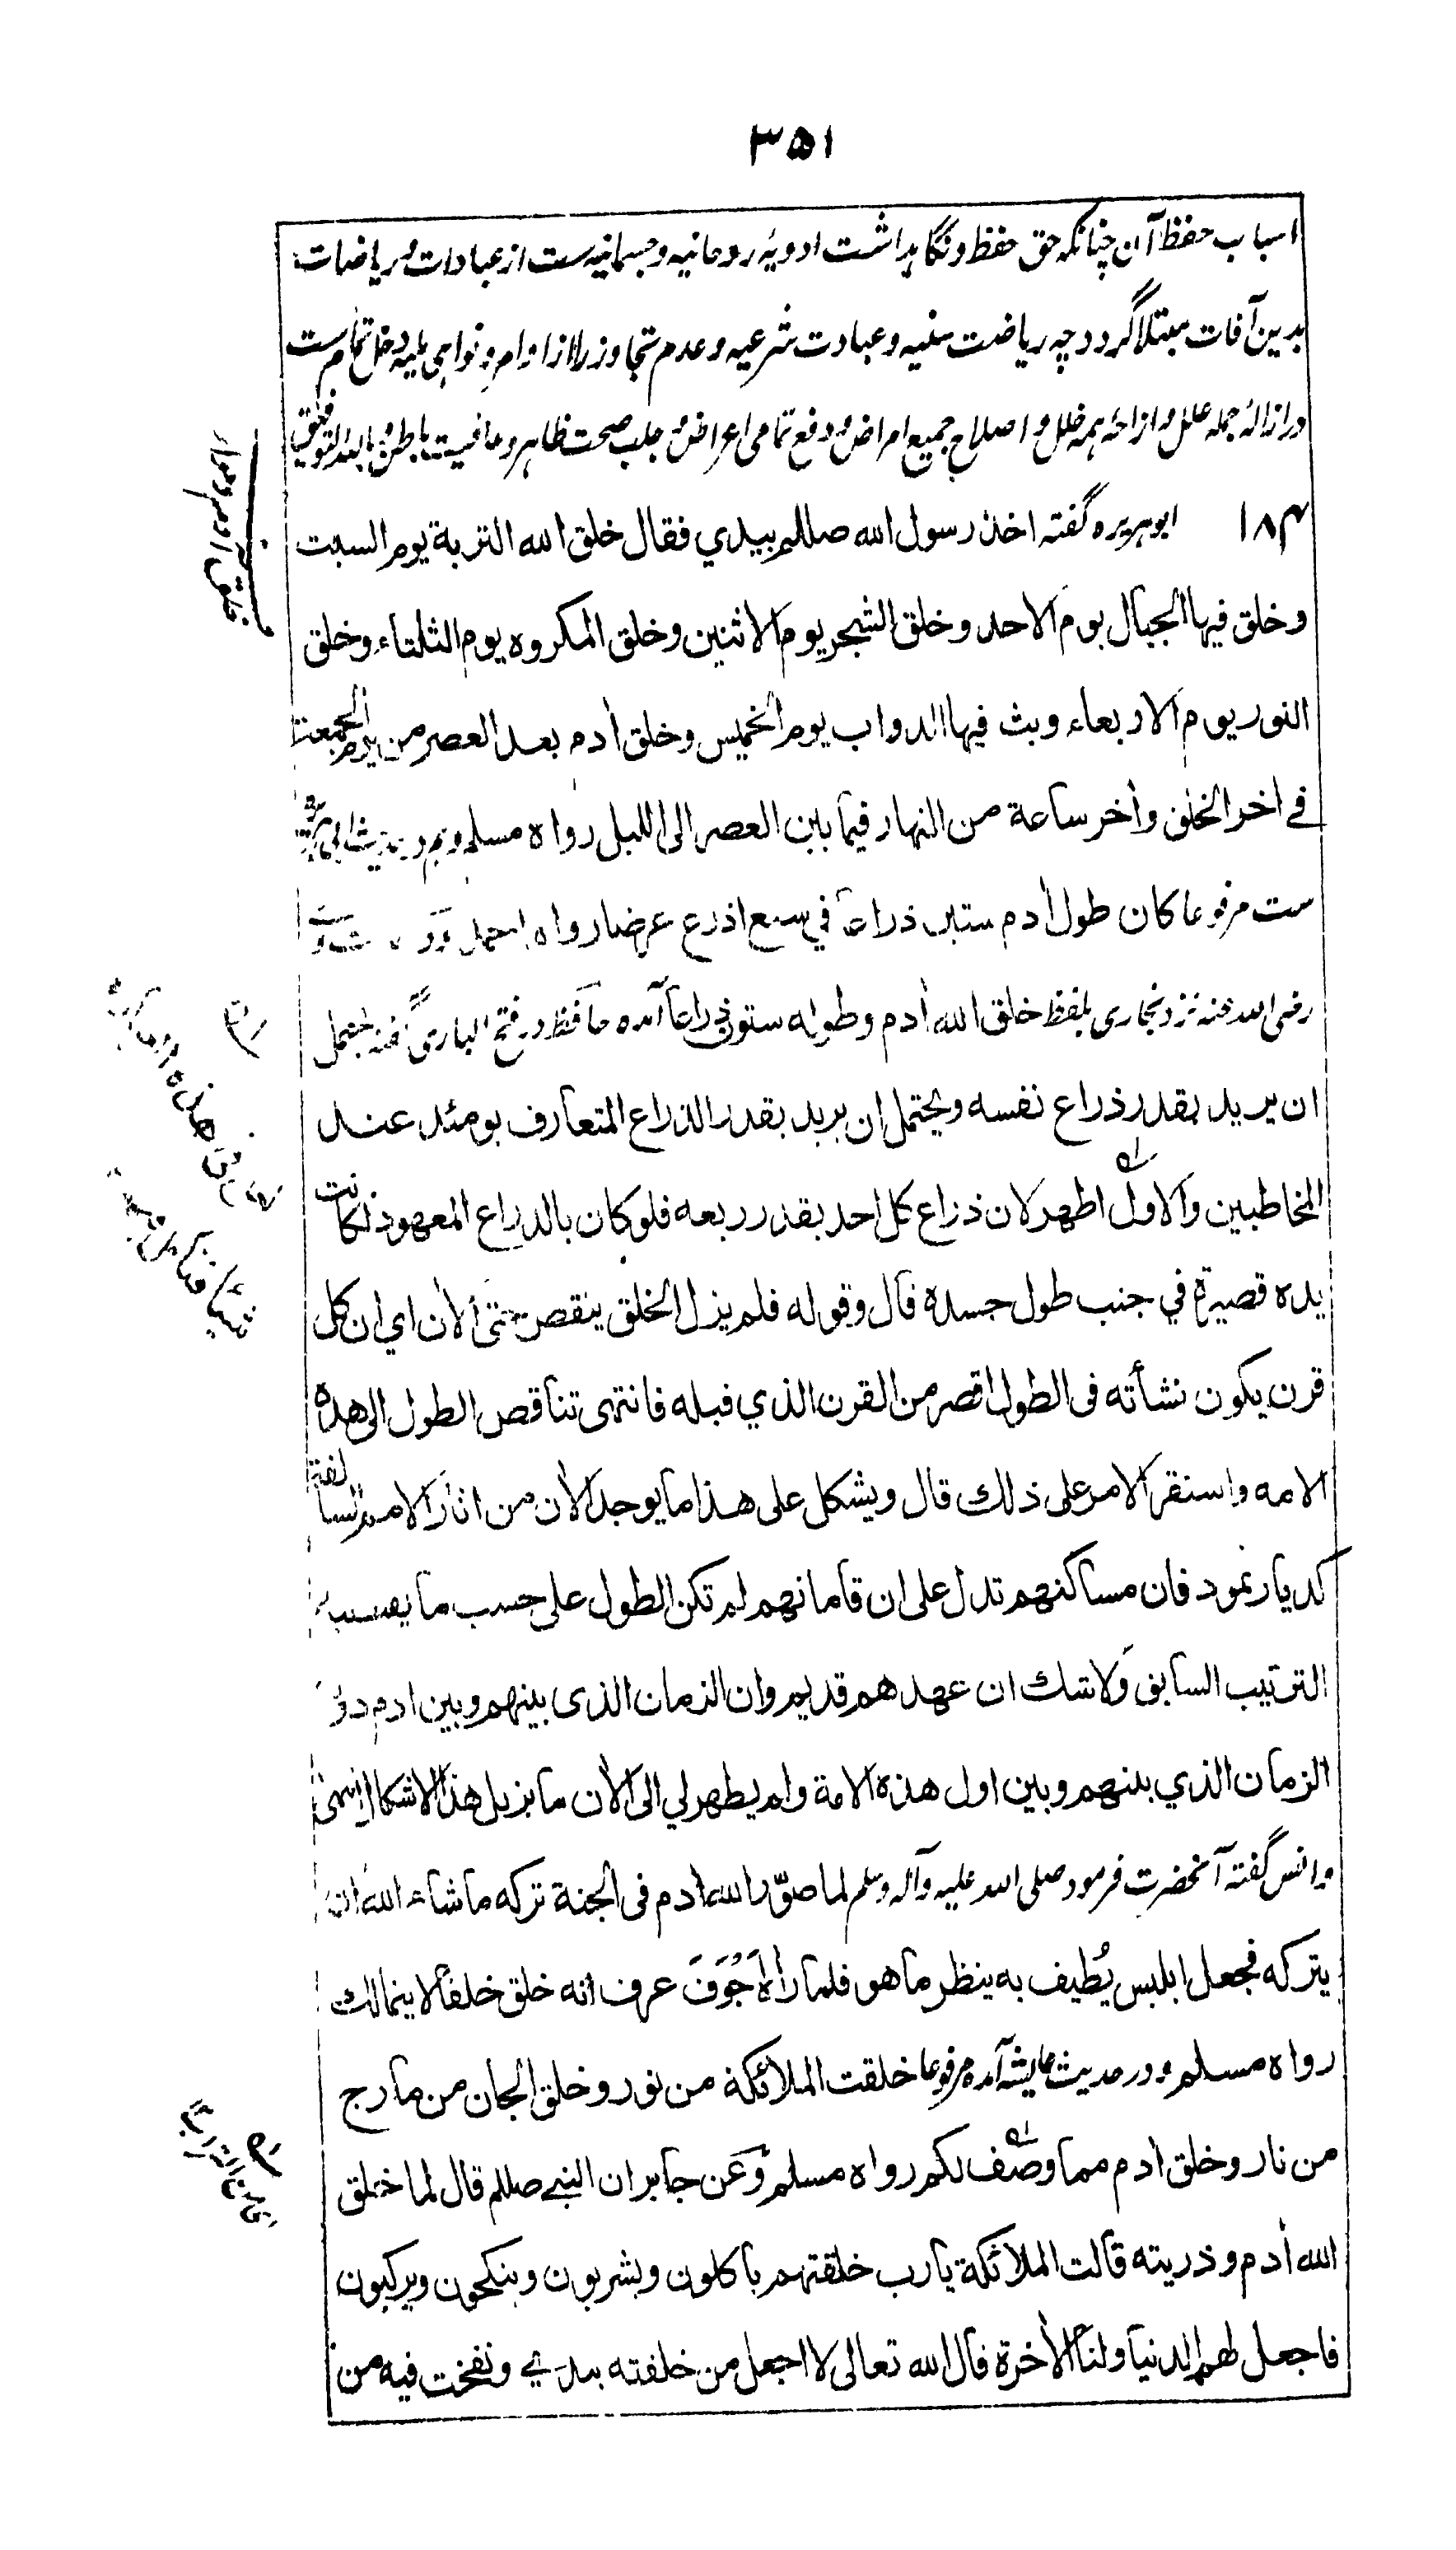 ۳۵۱
اسباب حفظ آن چنانکه حق حفظ و نگاہداشت ادویۂ روحانیہ و جسمانیہ ست از عبادات و ریاضات
بدین آفات مبتلا گردد چہ ریاضت سنیہ و عبادت شرعیہ و عدم تجاوز را از اوامر و نواہی ملیہ دخل تمام ست
در ازالۂ جملہ علل و ازاحۂ ہمہ خلل و اصلاح جمیع امراض و دفع تمامی اعراض و جلب صحت ظاہر و عافیت باطن و باللہ التوفیق
۱۸۴ ابوہریرہ گفتہ اخذ رسول الله صللم بيدي فقال خلق الله التربة يوم السبت
وخلق فيها الجبال يوم الاحد وخلق الشجر يوم الاثنين وخلق المكروه يوم الثلثاء وخلق
النور يوم الاربعاء وبث فيها الدواب يوم الخميس وخلق أدم بعد العصر من يوم الجمعة
في اخر الخلق وأخر ساعة من النهار فيما بين العصر الى الليل رواه مسلم وہم در حدیث ابی ہریرہ
ست مرفوعا كان طول أدم ستين ذراعا في سبع اذرع عرضا رواه احمد
رضی اللہ عنہ نزد بخاری بلفظ خلق الله أدم وطوله ستون ذراعا آمدہ حافظ در فتح الباری گفتہ يحتمل
ان يريد بقدر ذراع نفسه ويحتمل ان يريد بقدر الذراع المتعارف يومئذ عند
المخاطبين والاول اظهر لان ذراع كل احد بقدر ربعه فلو كان بالذراع المعهود لكانت
يده قصيرة في جنب طول جسده قال وقوله فلم يزل الخلق ينقص حتى ألان اي ان كل
قرن يكون نشأته في الطول اقصر من القرن الذي قبله فانتهى تناقص الطول الى هذه
الامه واستقر الامر على ذلك قال ويشكل على هذا ما يوجد الأن من اثار الامم السالفة
كديار ثمود فان مساكنهم تدل على ان قاماتهم لم تكن الطول على حسب ما
الترتيب السابق ولا شك ان عهدهم قديم وان الزمان الذى بينهم وبين ادم دون
الزمان الذي بينهم وبين اول هذه الامة ولم يظهر لي الى الأن ما يزيل هذا الاشكال انتهى
و انس گفتہ آنحضرت فرمود صلی اللہ علیہ وآلہ وسلم لما صوّر الله أدم في الجنة تركه ما شاء الله ان
يتركه فجعل ابليس يُطيف به ينظر ما هو فلما رأه أَجْوَفَ عرف انه خلق خلقا لا يتمالك
رواه مسلم و در حدیث عایشہ آمدہ مرفوعا خلقت الملائكة من نور وخلق الجان من مارج
من نار وخلق أدم مما وصف لكم رواه مسلم وعن جابر ان النبي صللم قال لما خلق
الله أدم وذريته قالت الملائكة يارب خلقتهم يأكلون ويشربون وينكحون ويركبون
فاجعل لهم الدنيا ولنا الأخرة قال الله تعالى لا اجعل من خلقته بيدي ونفخت فيه من